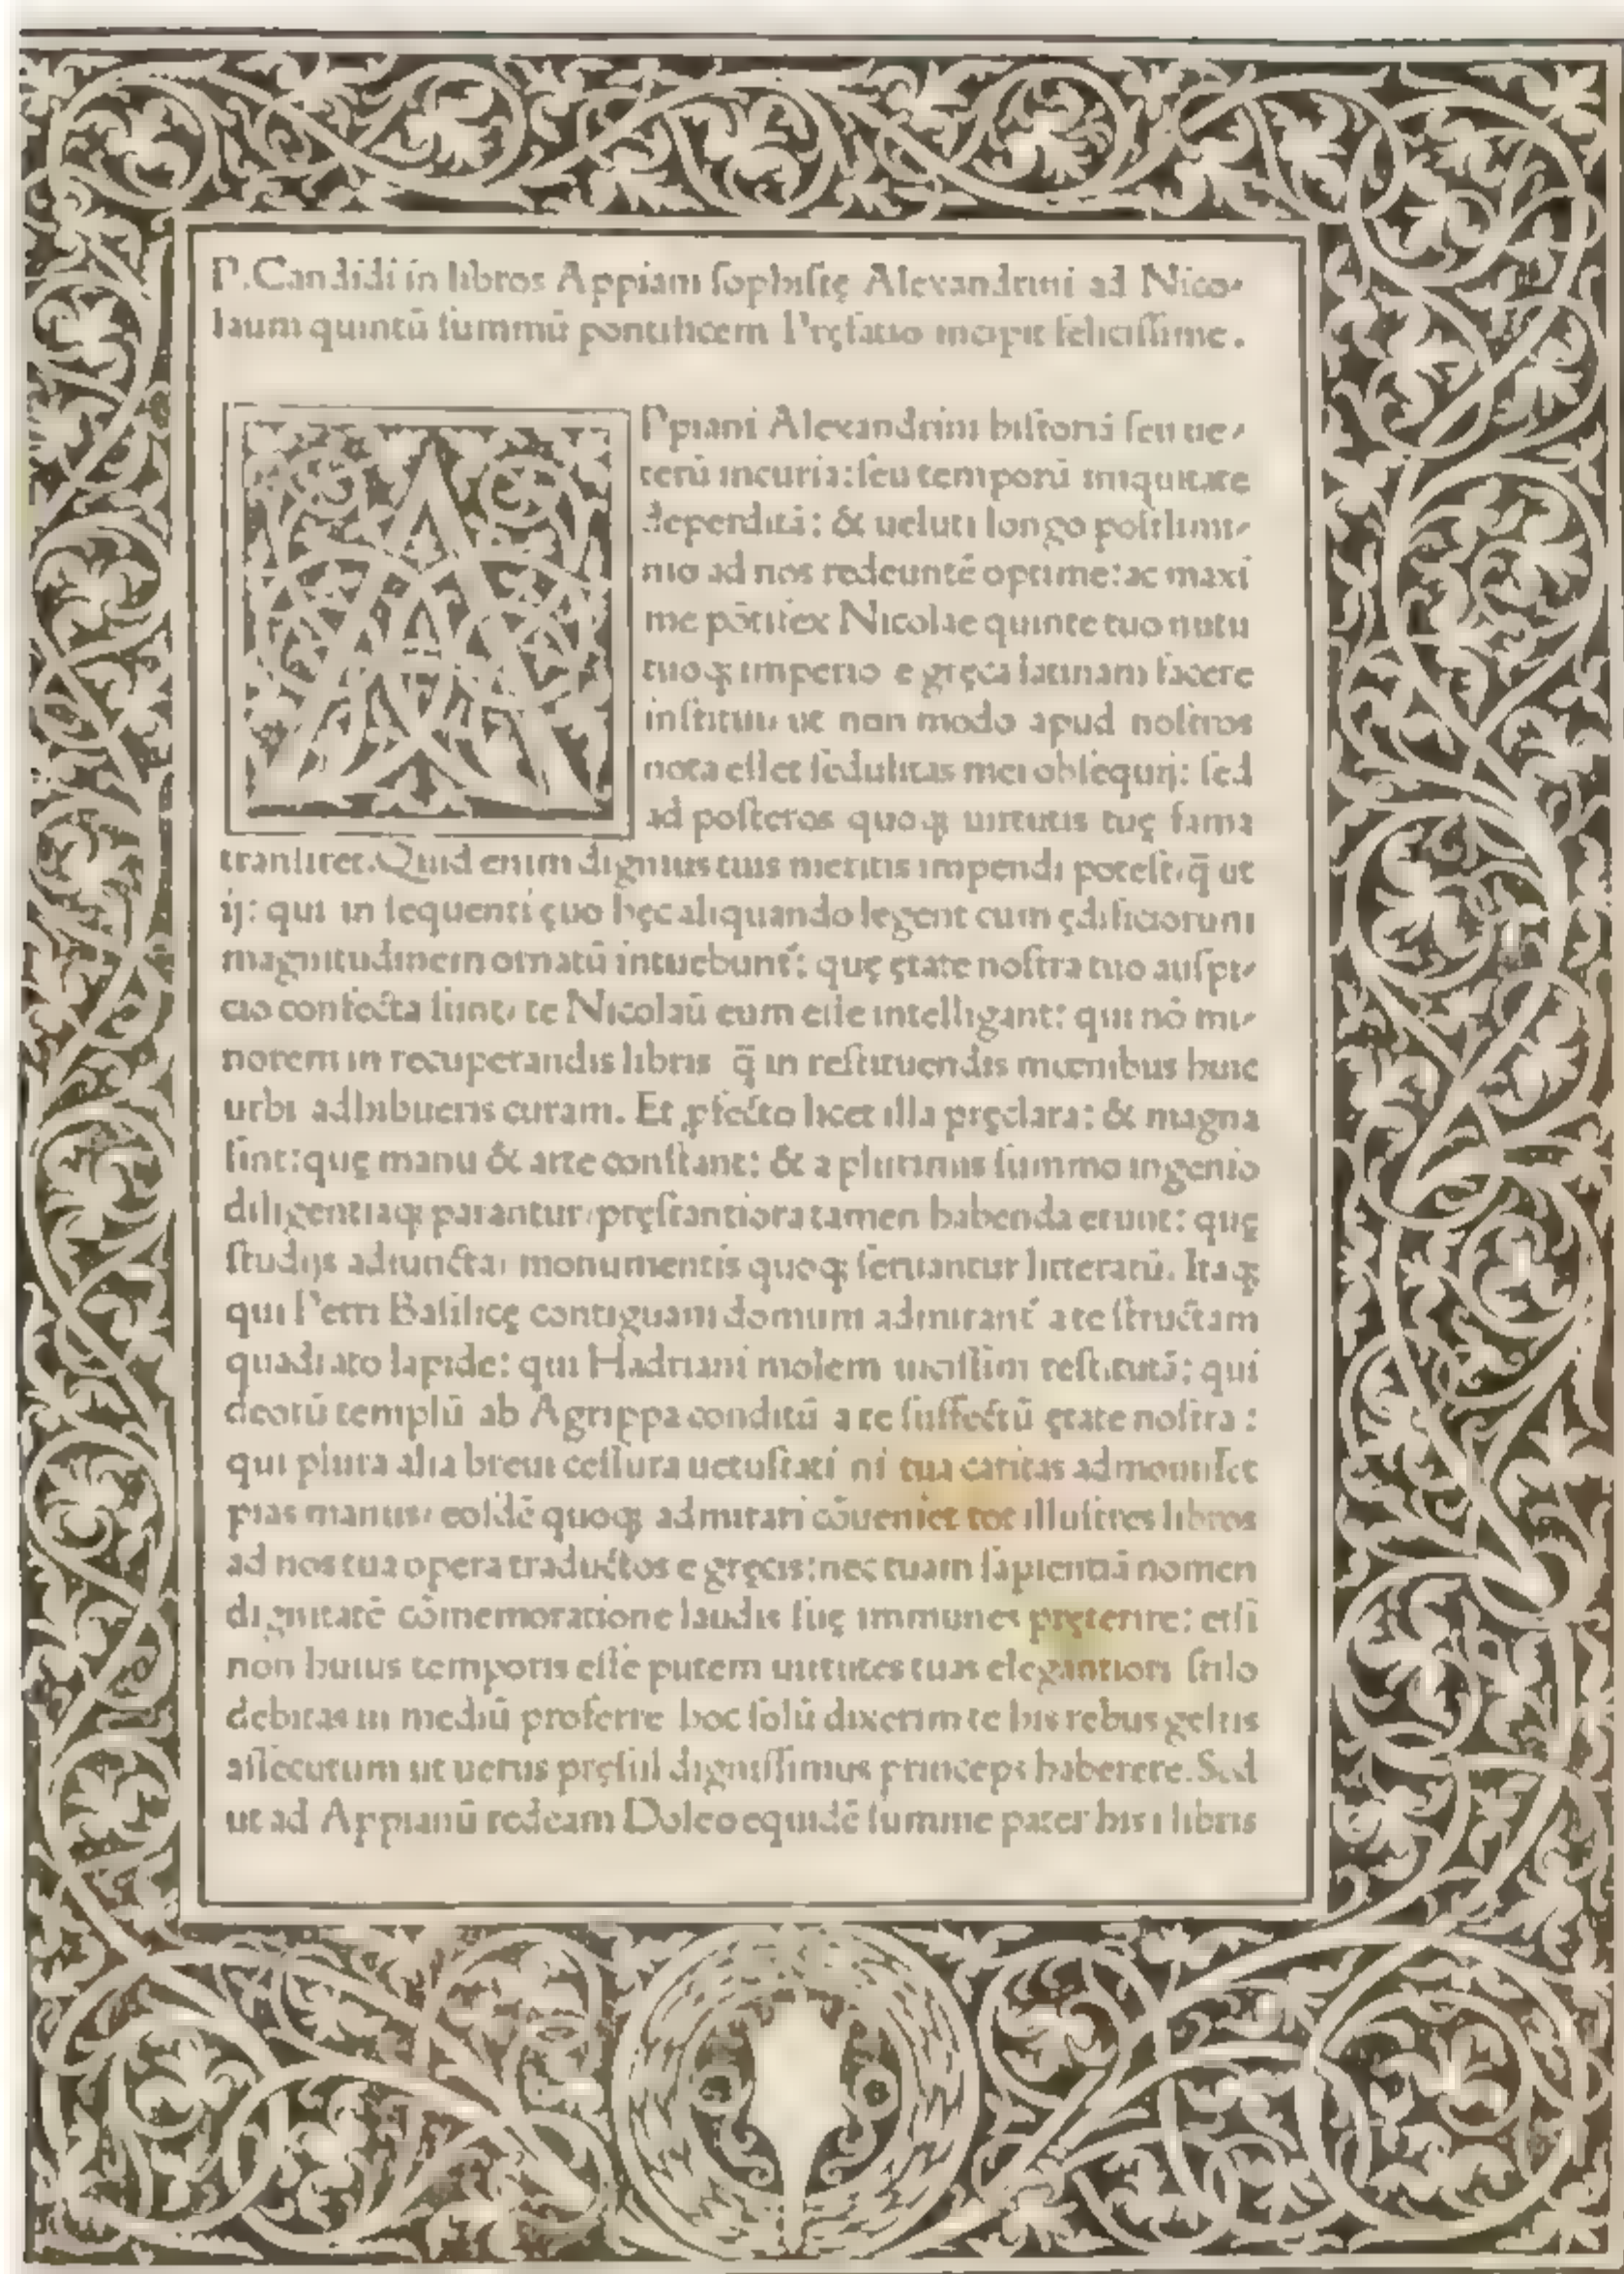 P. Candidi in libros Appiani ſophiſtę Alexandrini ad Nico-
laum quintū ſummū pontificem Pręfatio incipit feliciſſime.
APpiani Alexandrini hiſtoriā ſeu ue-
terū incuria: ſeu temporū iniquitate
deperditā: & ueluti longo poſtlimi-
nio ad nos redeuntē optime: ac maxi
me pōtifex Nicolae quinte tuo nutu
tuoqꝫ imperio e gręca latinam facere
inſtitui, ut non modo apud noſtros
nota eſſet ſedulitas mei obſequij: ſed
ad poſteros quoqꝫ uirtutis tuę fama
tranſiret. Quid enim dignius tuis meritis impendi poteſt, q̄ ut
ij: qui in ſequenti ęuo hęc aliquando legent cum ędificiorum
magnitudinem ornatū intuebunt᷑: quę ętate noſtra tuo auſpi-
cio confecta ſunt, te Nicolaū eum eſſe intelligant: qui nō mi-
norem in recuperandis libris q̄ in reſtituendis mœnibus huic
urbi adhibueris curam. Et ꝓfecto licet illa pręclara: & magna
ſint: quę manu & arte conſtant: & a plurimis ſummo ingenio
diligentiaqꝫ parantur, pręſtantiora tamen habenda erunt: quę
ſtudijs adiuncta, monumentis quoqꝫ ſeruantur litterarū. Itaqꝫ
qui Petri Baſilicę contiguam domum admirant᷑ a te ſtructam
quadrato lapide: qui Hadriani molem nuſſim reſtitutā: qui
deorū templū ab Agrippa conditū a te ſuffectū ętate noſtra:
qui plura alia breui ceſſura uetuſtati ni tua caritas admouiſſet
pias manus, eoſdē quoqꝫ admirari cōueniet tot illuſtres libros
ad nos tua opera traductos e gręcis: nec tuam ſapientiā nomen
dignitatē cōmemoratione laudis ſuę immunes pręterire: etſi
non huius temporis eſſe putem uirtutes tuas elegantiori ſtilo
debitas in mediū proferre hoc ſolū dixerim te his rebus geſtis
aſſecutum ut uerus pręſul digniſſimus princeps haberere. Sed
ut ad Appianū redeam Doleo equidē ſumme pater his i libris